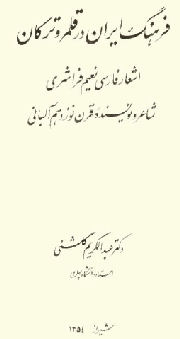 فرهنگ ایران در قلمرو ترکان
اشعار فارسی نعیم فراشری
شاعر و نویسندهٔ قرن نوزدهم آلبانی
دکتر عبدالکریم گلشنی
استاد دانشگاه پهلوی
شیراز ۱۳۵۴